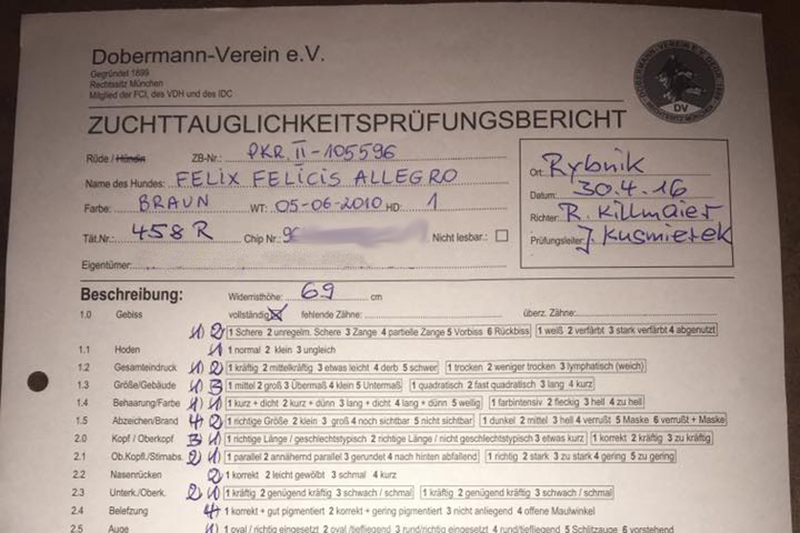 Dobermann-Verein e.V.
Gegründet 1899
Rechtssitz München
Mitglied der FCI, des VDH und des IDC
DOBERMANN-VEREIN E.V. GEGR. 1899
RECHTSSITZ MÜNCHEN
DV
ZUCHTTAUGLICHKEITSPRÜFUNGSBERICHT
Rüde / Hündin ZB-Nr.: PKR. II-105596
Name des Hundes: FELIX FELICIS ALLEGRO
Farbe: BRAUN WT: 05-06-2010 HD: 1
Tät.Nr.: 458 R Chip Nr.: 9 Nicht lesbar.:
Eigentümer:
Ort: Rybnik
Datum: 30.4.16
Richter: R. Killmaier
Prüfungsleiter: J. Kusmierek
Beschreibung: Widerristhöhe: 69 cm
1.0 Gebiss vollständig fehlende Zähne: überz. Zähne:
1) 2) 1 Schere 2 unregelm. Schere 3 Zange 4 partielle Zange 5 Vorbiss 6 Rückbiss 1 weiß 2 verfärbt 3 stark verfärbt 4 abgenutzt
1.1 Hoden 1 1 normal 2 klein 3 ungleich
1.2 Gesamteindruck 1 2 1 kräftig 2 mittelkräftig 3 etwas leicht 4 derb 5 schwer 1 trocken 2 weniger trocken 3 lymphatisch (weich)
1.3 Größe/Gebäude 1 3 1 mittel 2 groß 3 Übermaß 4 klein 5 Untermaß 1 quadratisch 2 fast quadratisch 3 lang 4 kurz
1.4 Behaarung/Farbe 1 1 1 kurz + dicht 2 kurz + dünn 3 lang + dicht 4 lang + dünn 5 wellig 1 farbintensiv 2 fleckig 3 hell 4 zu hell
1.5 Abzeichen/Brand 4 2 1 richtige Größe 2 klein 3 groß 4 noch sichtbar 5 nicht sichtbar 1 dunkel 2 mittel 3 hell 4 verrußt 5 Maske 6 verrußt + Maske
2.0 Kopf / Oberkopf 3 1 1 richtige Länge / geschlechtstypisch 2 richtige Länge / nicht geschlechtstypisch 3 etwas kurz 1 korrekt 2 kräftig 3 zu kräftig
2.1 Ob.Kopfl./Stirnabs. 2 1 1 parallel 2 annähernd parallel 3 gerundet 4 nach hinten abfallend 1 richtig 2 stark 3 zu stark 4 gering 5 zu gering
2.2 Nasenrücken 2 1 korrekt 2 leicht gewölbt 3 schmal 4 kurz
2.3 Unterk./Oberk. 2 1 1 kräftig 2 genügend kräftig 3 schwach / schmal 1 kräftig 2 genügend kräftig 3 schwach / schmal
2.4 Belefzung 4 1 korrekt + gut pigmentiert 2 korrekt + gering pigmentiert 3 nicht anliegend 4 offene Maulwinkel
2.5 Auge 1 1 oval / richtig eingesetzt 2 oval /tiefliegend 3 rund/richtig eingesetzt 4 rund/tiefliegend 5 Schlitzauge 6 vorstehend